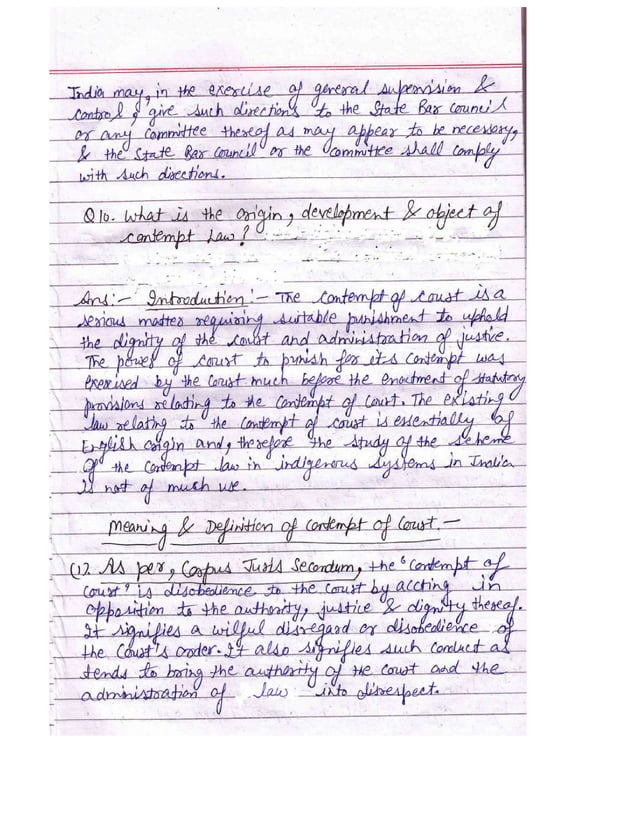 India may, in the exercise of general supervision &
control, give such directions to the State Bar council
or any committee thereof as may appear to be necessary,
& the State Bar council or the committee shall comply
with such directions.
Q10. What is the origin, development & object of
contempt Law?
Ans:- Introduction:- The contempt of court is a
serious matter requiring suitable punishment to uphold
the dignity of the court and administration of justice.
The power of court to punish for its contempt was
exercised by the court much before the enactment of statutory
provisions relating to the contempt of court. The existing
law relating to the contempt of court is essentially of
English origin and, therefore the study of the scheme
of the contempt law in indigenous systems in India
is not of much use.
Meaning & Definition of contempt of Court.-
(1) As per, Corpus Juris Secondum, the "contempt of
court" is disobedience to the court by accting in
opposition to the authority, justice & dignity thereof.
It signifies a wilful disregard or disobedience of
the court's order. It also signifies such conduct as
tends to bring the authority of the court and the
administration of law into disrespect.